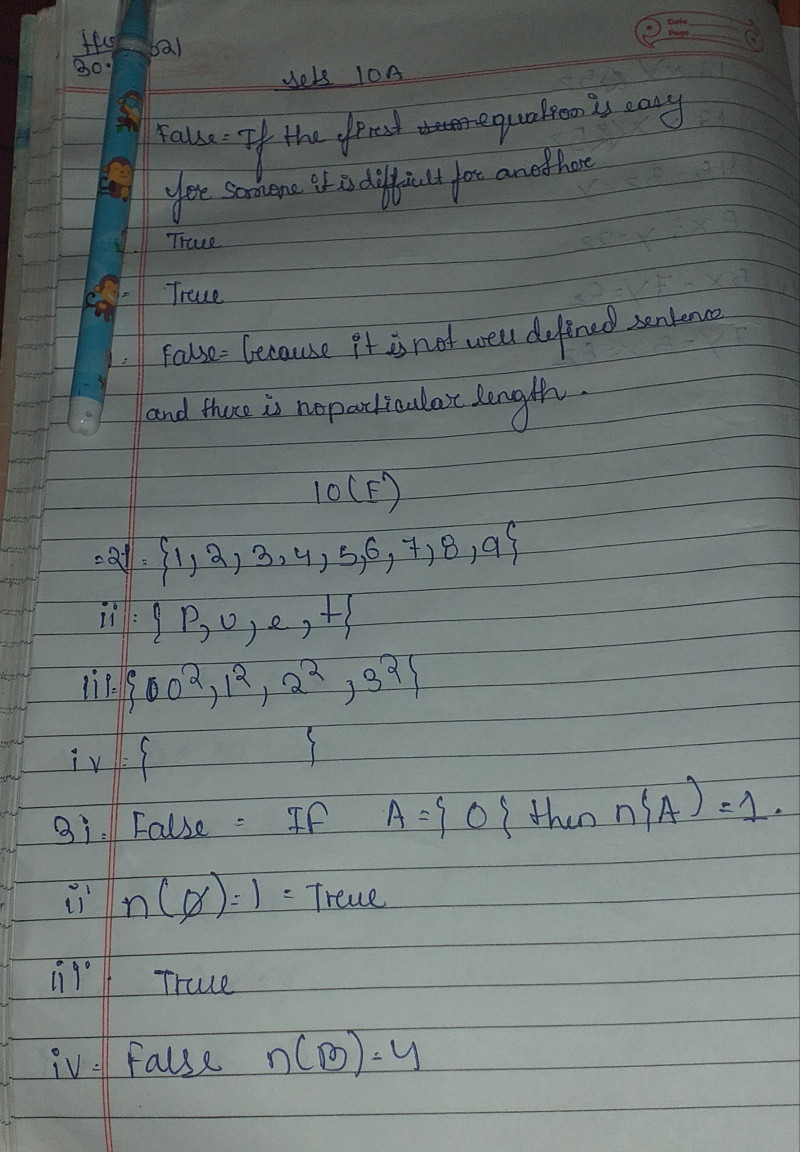 Date
Page
sets 10A
False = If the first equation is easy
for somone it is difficult for anothore
True
True
False = because it is not well defined sentence
and there is no particular length.
10(F)
= 2i = {1, 2, 3, 4, 5, 6, 7, 8, 9}
ii = { P, u, e, t}
iii = { 0², 1², 2², 3²}
iv = { }
3i. False = If A = { 0 } then n{A) = 1.
ii n(Ø) = 1 = True
iii True
iv = False n(B) = 4